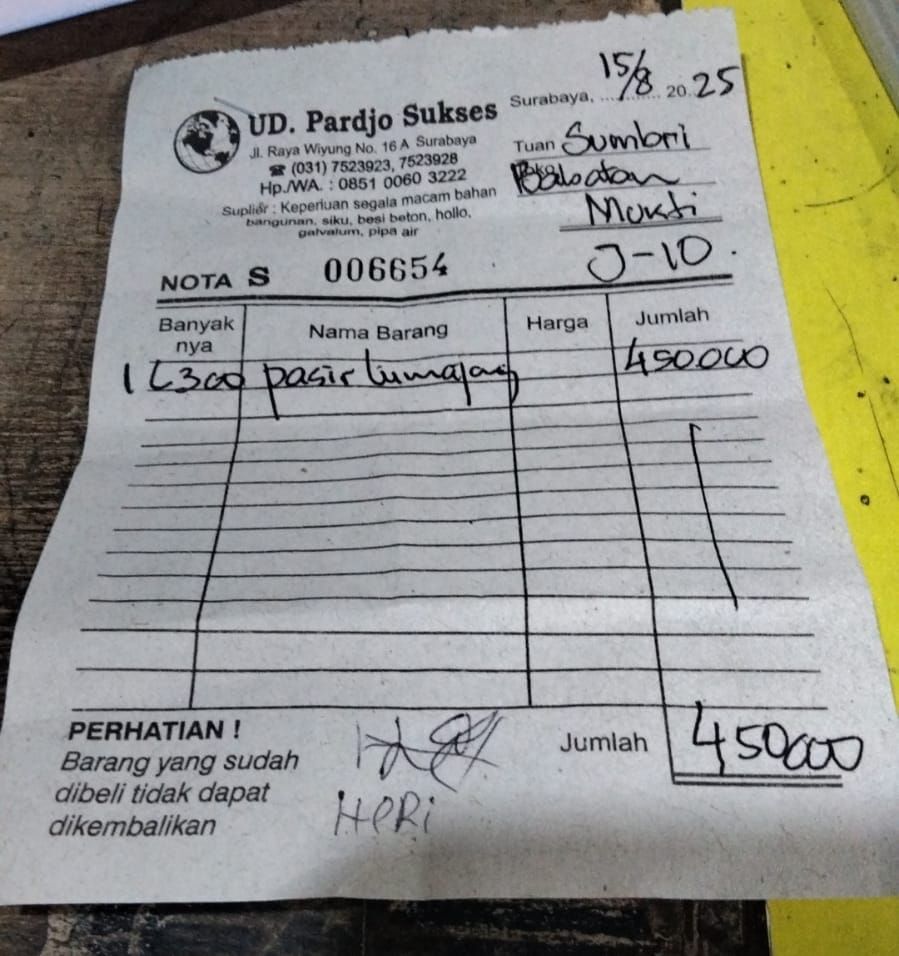 UD. Pardjo Sukses
Jl. Raya Wiyung No. 16 A Surabaya
☎ (031) 7523923, 7523928
Hp./WA. : 0851 0060 3222
Suplier : Keperluan segala macam bahan
bangunan, siku, besi beton, hollo,
galvalum, pipa air
Surabaya, 15/8 2025
Tuan Sumbri
Babatan
Mukti
J-10.
NOTA S 006654
Banyak nya Nama Barang Harga Jumlah
1 L300 pasir lumajang 450.000
Jumlah 450000
PERHATIAN !
Barang yang sudah
dibeli tidak dapat
dikembalikan
HeRi